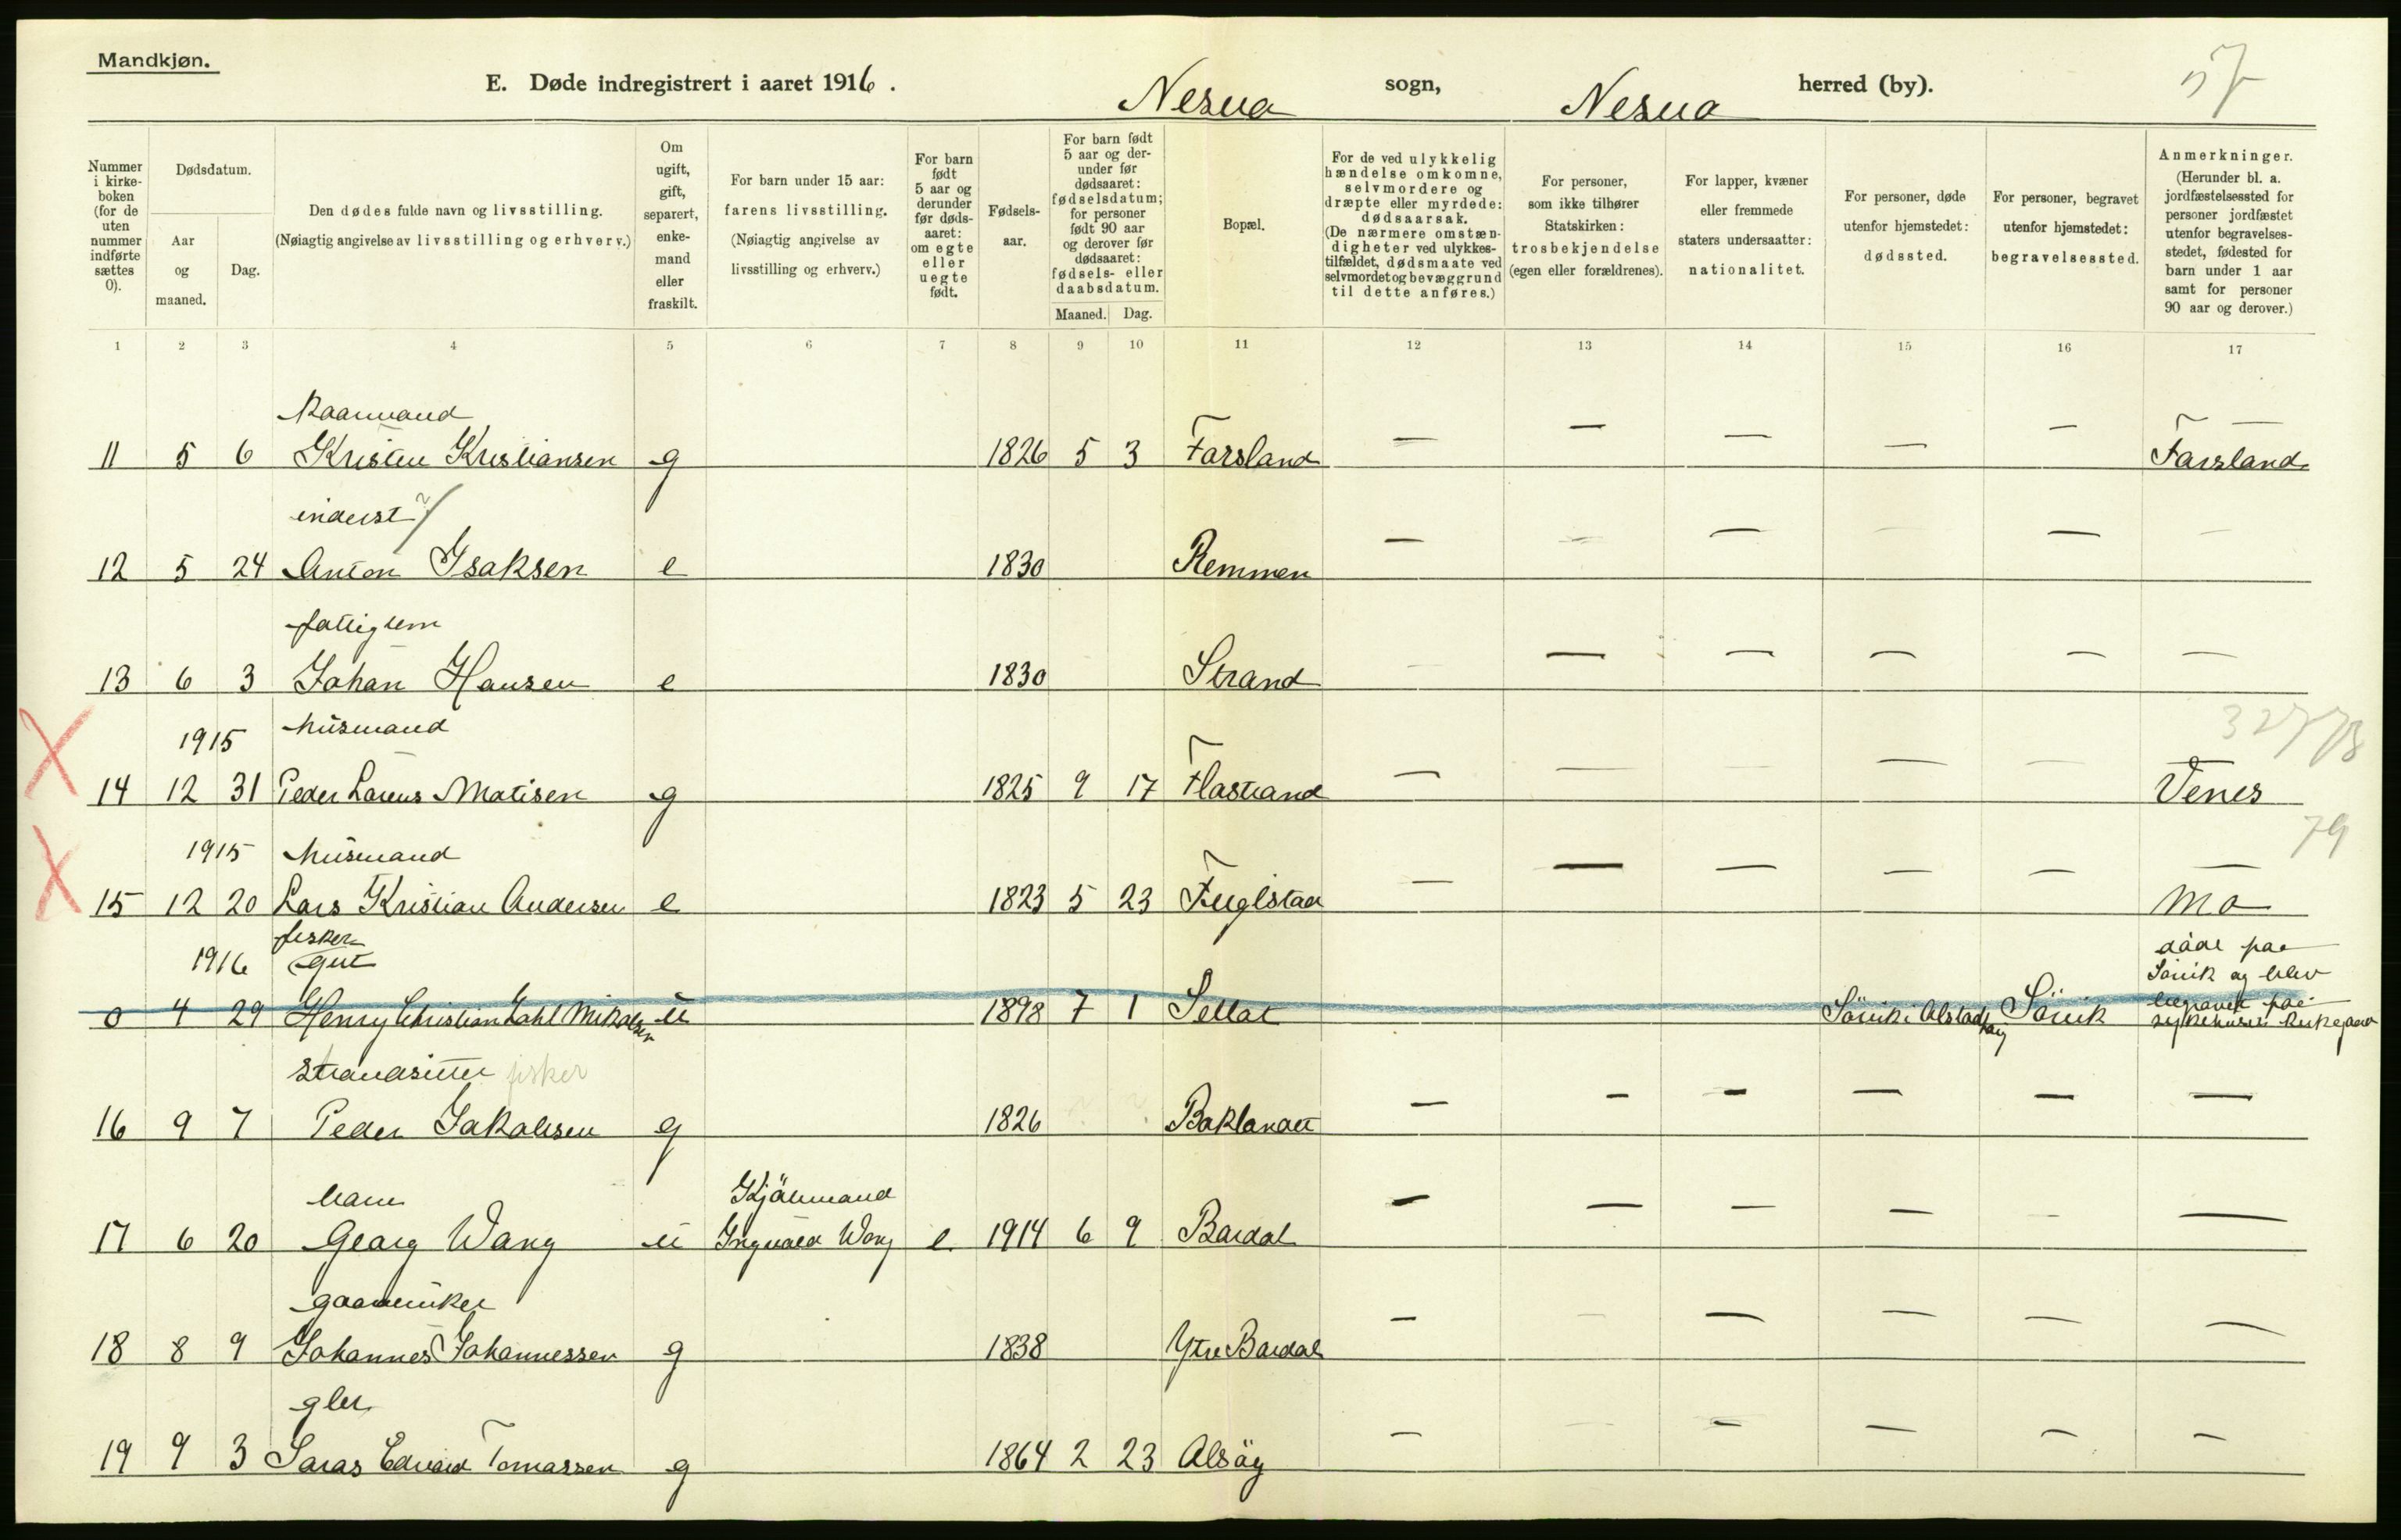 Mandkjøn.
E. Døde indregistrert i aaret 1916. Nesna sogn, Nesna herred (by). 57
Nummer i kirkeboken (for de uten nummer indførte sættes 0).
Dødsdatum.
Aar og maaned.
Dag.
Den dødes fulde navn og livsstilling.
(Nøiagtig angivelse av livsstilling og erhverv.)
Om ugift, gift, separert, enkemand eller fraskilt.
For barn under 15 aar: farens livsstilling.
(Nøiagtig angivelse av livsstilling og erhverv.)
For barn født 5 aar og derunder før dødsaaret: om egte eller uegte født.
Fødselsaar.
For barn født 5 aar og derunder før dødsaaret: fødselsdatum; for personer født 90 aar og derover før dødsaaret: fødsels- eller daabsdatum.
Maaned.
Dag.
Bopæl.
For de ved ulykkelig hændelse omkomne, selvmordere og dræpte eller myrdede: dødsaarsak.
(De nærmere omstændigheter ved ulykkestilfældet, dødsmaate ved selvmordet og bevæggrund til dette anføres.)
For personer, som ikke tilhører Statskirken: trosbekjendelse (egen eller forældrenes).
For lapper, kvæner eller fremmede staters undersaatter: nationalitet.
For personer, døde utenfor hjemstedet: dødssted.
For personer, begravet utenfor hjemstedet: begravelsessted.
Anmerkninger.
(Herunder bl. a. jordfæstelsessted for personer jordfæstet utenfor begravelsesstedet, fødested for barn under 1 aar samt for personer 90 aar og derover.)
1 2 3 4 5 6 7 8 9 10 11 12 13 14 15 16 17
Kaarmand
11 5 6 Kristen Kristiansen g 1826 5 3 Farsland — — — — — — Farsland
inderst ?/
12 5 24 Anton Isaksen e 1830 Remmen — — — — — —
fattiglem
13 6 3 Johan Hansen e 1830 Strand — — — — — —
1915 husmand 32778
14 12 31 Peder Lorens Matisen g 1825 9 17 Flastrand — — — — — — Venes
79
1915 husmand
15 12 20 Lars Kristian Andersen e 1823 5 23 Fuglstad — — — — — — Mo
fisker
1916 gut
0 4 29 Henry Christian Dahl Mikalsen u 1898 7 1 Sellat Sövik i Alstadhaug Sövik döde paa Sövik og blev begravet paa sykehusets kirkegaard
Strandsitter fisker
16 9 7 Peder Jakobsen g 1826 Baklandet — — — — — —
barn Kjöbmand
17 6 20 Georg Wang u Ingvald Wang e 1914 6 9 Bardal — — — — — —
gaardbruker
18 8 9 Johannes Johannessen g 1838 Ytre Bardal — — — — — —
gbr.
19 9 3 Saras Edvard Tomassen g 1864 2 23 Alsöy — — — — — —